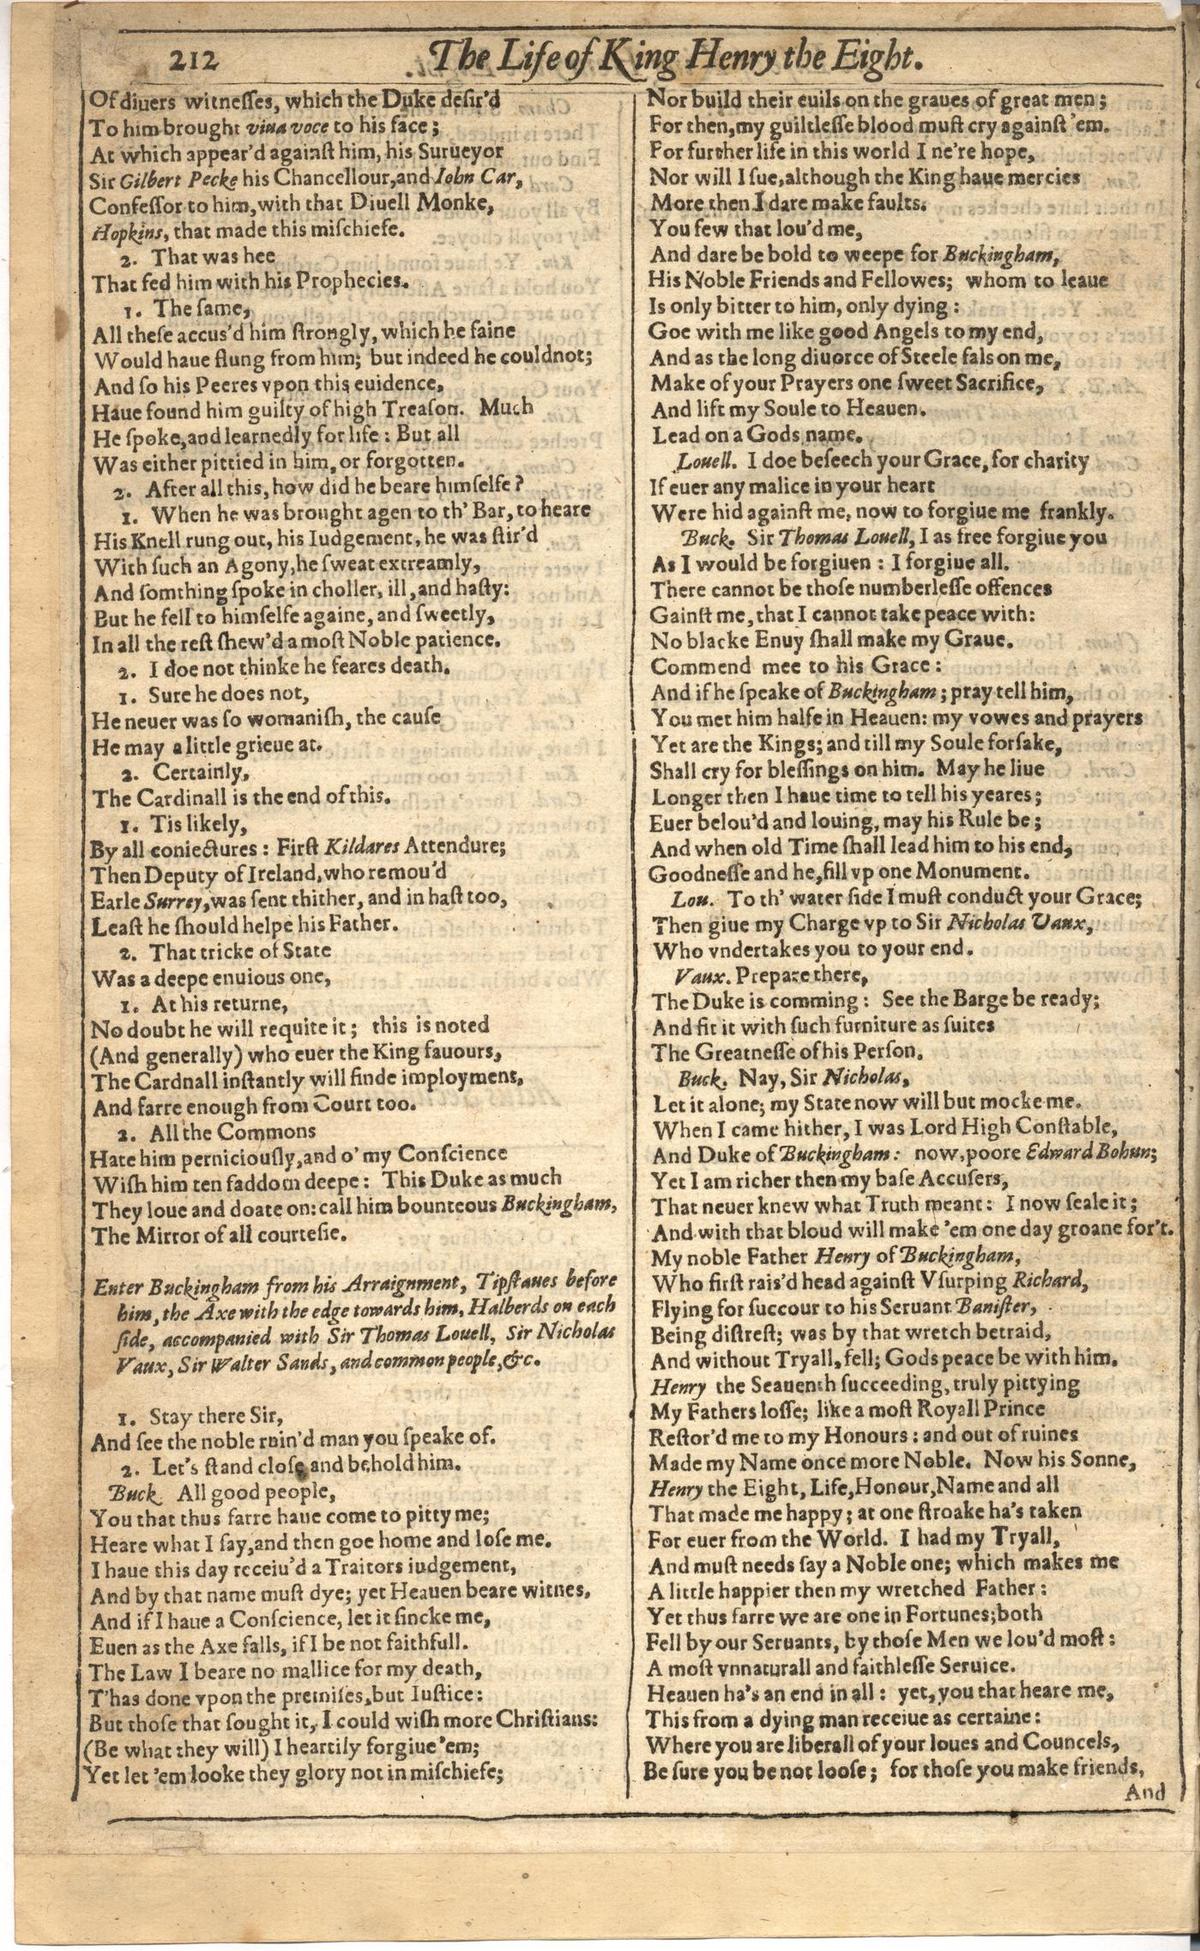 212
The Life of King Henry the Eight.
Of diuers witnesses, which the Duke desir'd
To him brought viua voce to his face;
At which appear'd against him, his Surueyor
Sir Gilbert Pecke his Chancellour, and Iohn Car,
Confessor to him, with that Diuell Monke,
Hopkins, that made this mischiefe.
2. That was hee
That fed him with his Prophecies.
1. The same,
All these accus'd him strongly, which he faine
Would haue flung from him; but indeed he could not;
And so his Peeres vpon this euidence,
Haue found him guilty of high Treason. Much
He spoke, and learnedly for life: But all
Was either pittied in him, or forgotten.
2. After all this, how did he beare himselfe?
1. When he was brought agen to th' Bar, to heare
His Knell rung out, his Iudgement, he was stir'd
With such an Agony, he sweat extreamly,
And somthing spoke in choller, ill, and hasty:
But he fell to himselfe againe, and sweetly,
In all the rest shew'd a most Noble patience.
2. I doe not thinke he feares death.
1. Sure he does not,
He neuer was so womanish, the cause
He may a little grieue at.
2. Certainly,
The Cardinall is the end of this.
1. Tis likely,
By all coniectures: First Kildares Attendure;
Then Deputy of Ireland, who remou'd
Earle Surrey, was sent thither, and in hast too,
Least he should helpe his Father.
2. That tricke of State
Was a deepe enuious one,
1. At his returne,
No doubt he will requite it; this is noted
(And generally) who euer the King fauours,
The Cardnall instantly will finde imployment,
And farre enough from Court too.
2. All the Commons
Hate him perniciously, and o' my Conscience
Wish him ten faddom deepe: This Duke as much
They loue and doate on: call him bounteous Buckingham,
The Mirror of all courtesie.
Enter Buckingham from his Arraignment, Tipstaues before
him, the Axe with the edge towards him, Halberds on each
side, accompanied with Sir Thomas Louell, Sir Nicholas
Vaux, Sir Walter Sands, and common people, &c.
1. Stay there Sir,
And see the noble ruin'd man you speake of.
2. Let's stand close and behold him.
Buck. All good people,
You that thus farre haue come to pitty me;
Heare what I say, and then goe home and lose me.
I haue this day receiu'd a Traitors iudgement,
And by that name must dye; yet Heauen beare witnes,
And if I haue a Conscience, let it sincke me,
Euen as the Axe falls, if I be not faithfull.
The Law I beare no mallice for my death,
T'has done vpon the premises, but Iustice:
But those that sought it, I could wish more Christians:
(Be what they will) I heartily forgiue 'em;
Yet let 'em looke they glory not in mischiefe;
Nor build their euils on the graues of great men;
For then, my guiltlesse blood must cry against 'em.
For further life in this world I ne're hope,
Nor will I sue, although the King haue mercies
More then I dare make faults.
You few that lou'd me,
And dare be bold to weepe for Buckingham,
His Noble Friends and Fellowes; whom to leaue
Is only bitter to him, only dying:
Goe with me like good Angels to my end,
And as the long diuorce of Steele fals on me,
Make of your Prayers one sweet Sacrifice,
And lift my Soule to Heauen.
Lead on a Gods name.
Louell. I doe beseech your Grace, for charity
If euer any malice in your heart
Were hid against me, now to forgiue me frankly.
Buck. Sir Thomas Louell, I as free forgiue you
As I would be forgiuen: I forgiue all.
There cannot be those numberlesse offences
Gainst me, that I cannot take peace with:
No blacke Enuy shall make my Graue.
Commend mee to his Grace:
And if he speake of Buckingham; pray tell him,
You met him halfe in Heauen: my vowes and prayers
Yet are the Kings; and till my Soule forsake,
Shall cry for blessings on him. May he liue
Longer then I haue time to tell his yeares;
Euer belou'd and louing, may his Rule be;
And when old Time shall lead him to his end,
Goodnesse and he, fill vp one Monument.
Lou. To th' water side I must conduct your Grace;
Then giue my Charge vp to Sir Nicholas Vaux,
Who vndertakes you to your end.
Vaux. Prepare there,
The Duke is comming: See the Barge be ready;
And fit it with such furniture as suites
The Greatnesse of his Person.
Buck. Nay, Sir Nicholas,
Let it alone; my State now will but mocke me.
When I came hither, I was Lord High Constable,
And Duke of Buckingham: now, poore Edward Bohun;
Yet I am richer then my base Accusers,
That neuer knew what Truth meant: I now seale it;
And with that bloud will make 'em one day groane for't.
My noble Father Henry of Buckingham,
Who first rais'd head against Vsurping Richard,
Flying for succour to his Seruant Banister,
Being distrest; was by that wretch betraid,
And without Tryall, fell; Gods peace be with him.
Henry the Seauenth succeeding, truly pittying
My Fathers losse; like a most Royall Prince
Restor'd me to my Honours: and out of ruines
Made my Name once more Noble. Now his Sonne,
Henry the Eight, Life, Honour, Name and all
That made me happy; at one stroake ha's taken
For euer from the World. I had my Tryall,
And must needs say a Noble one; which makes me
A little happier then my wretched Father:
Yet thus farre we are one in Fortunes; both
Fell by our Seruants, by those Men we lou'd most:
A most vnnaturall and faithlesse Seruice.
Heauen ha's an end in all: yet, you that heare me,
This from a dying man receiue as certaine:
Where you are liberall of your loues and Councels,
Be sure you be not loose; for those you make friends,
And